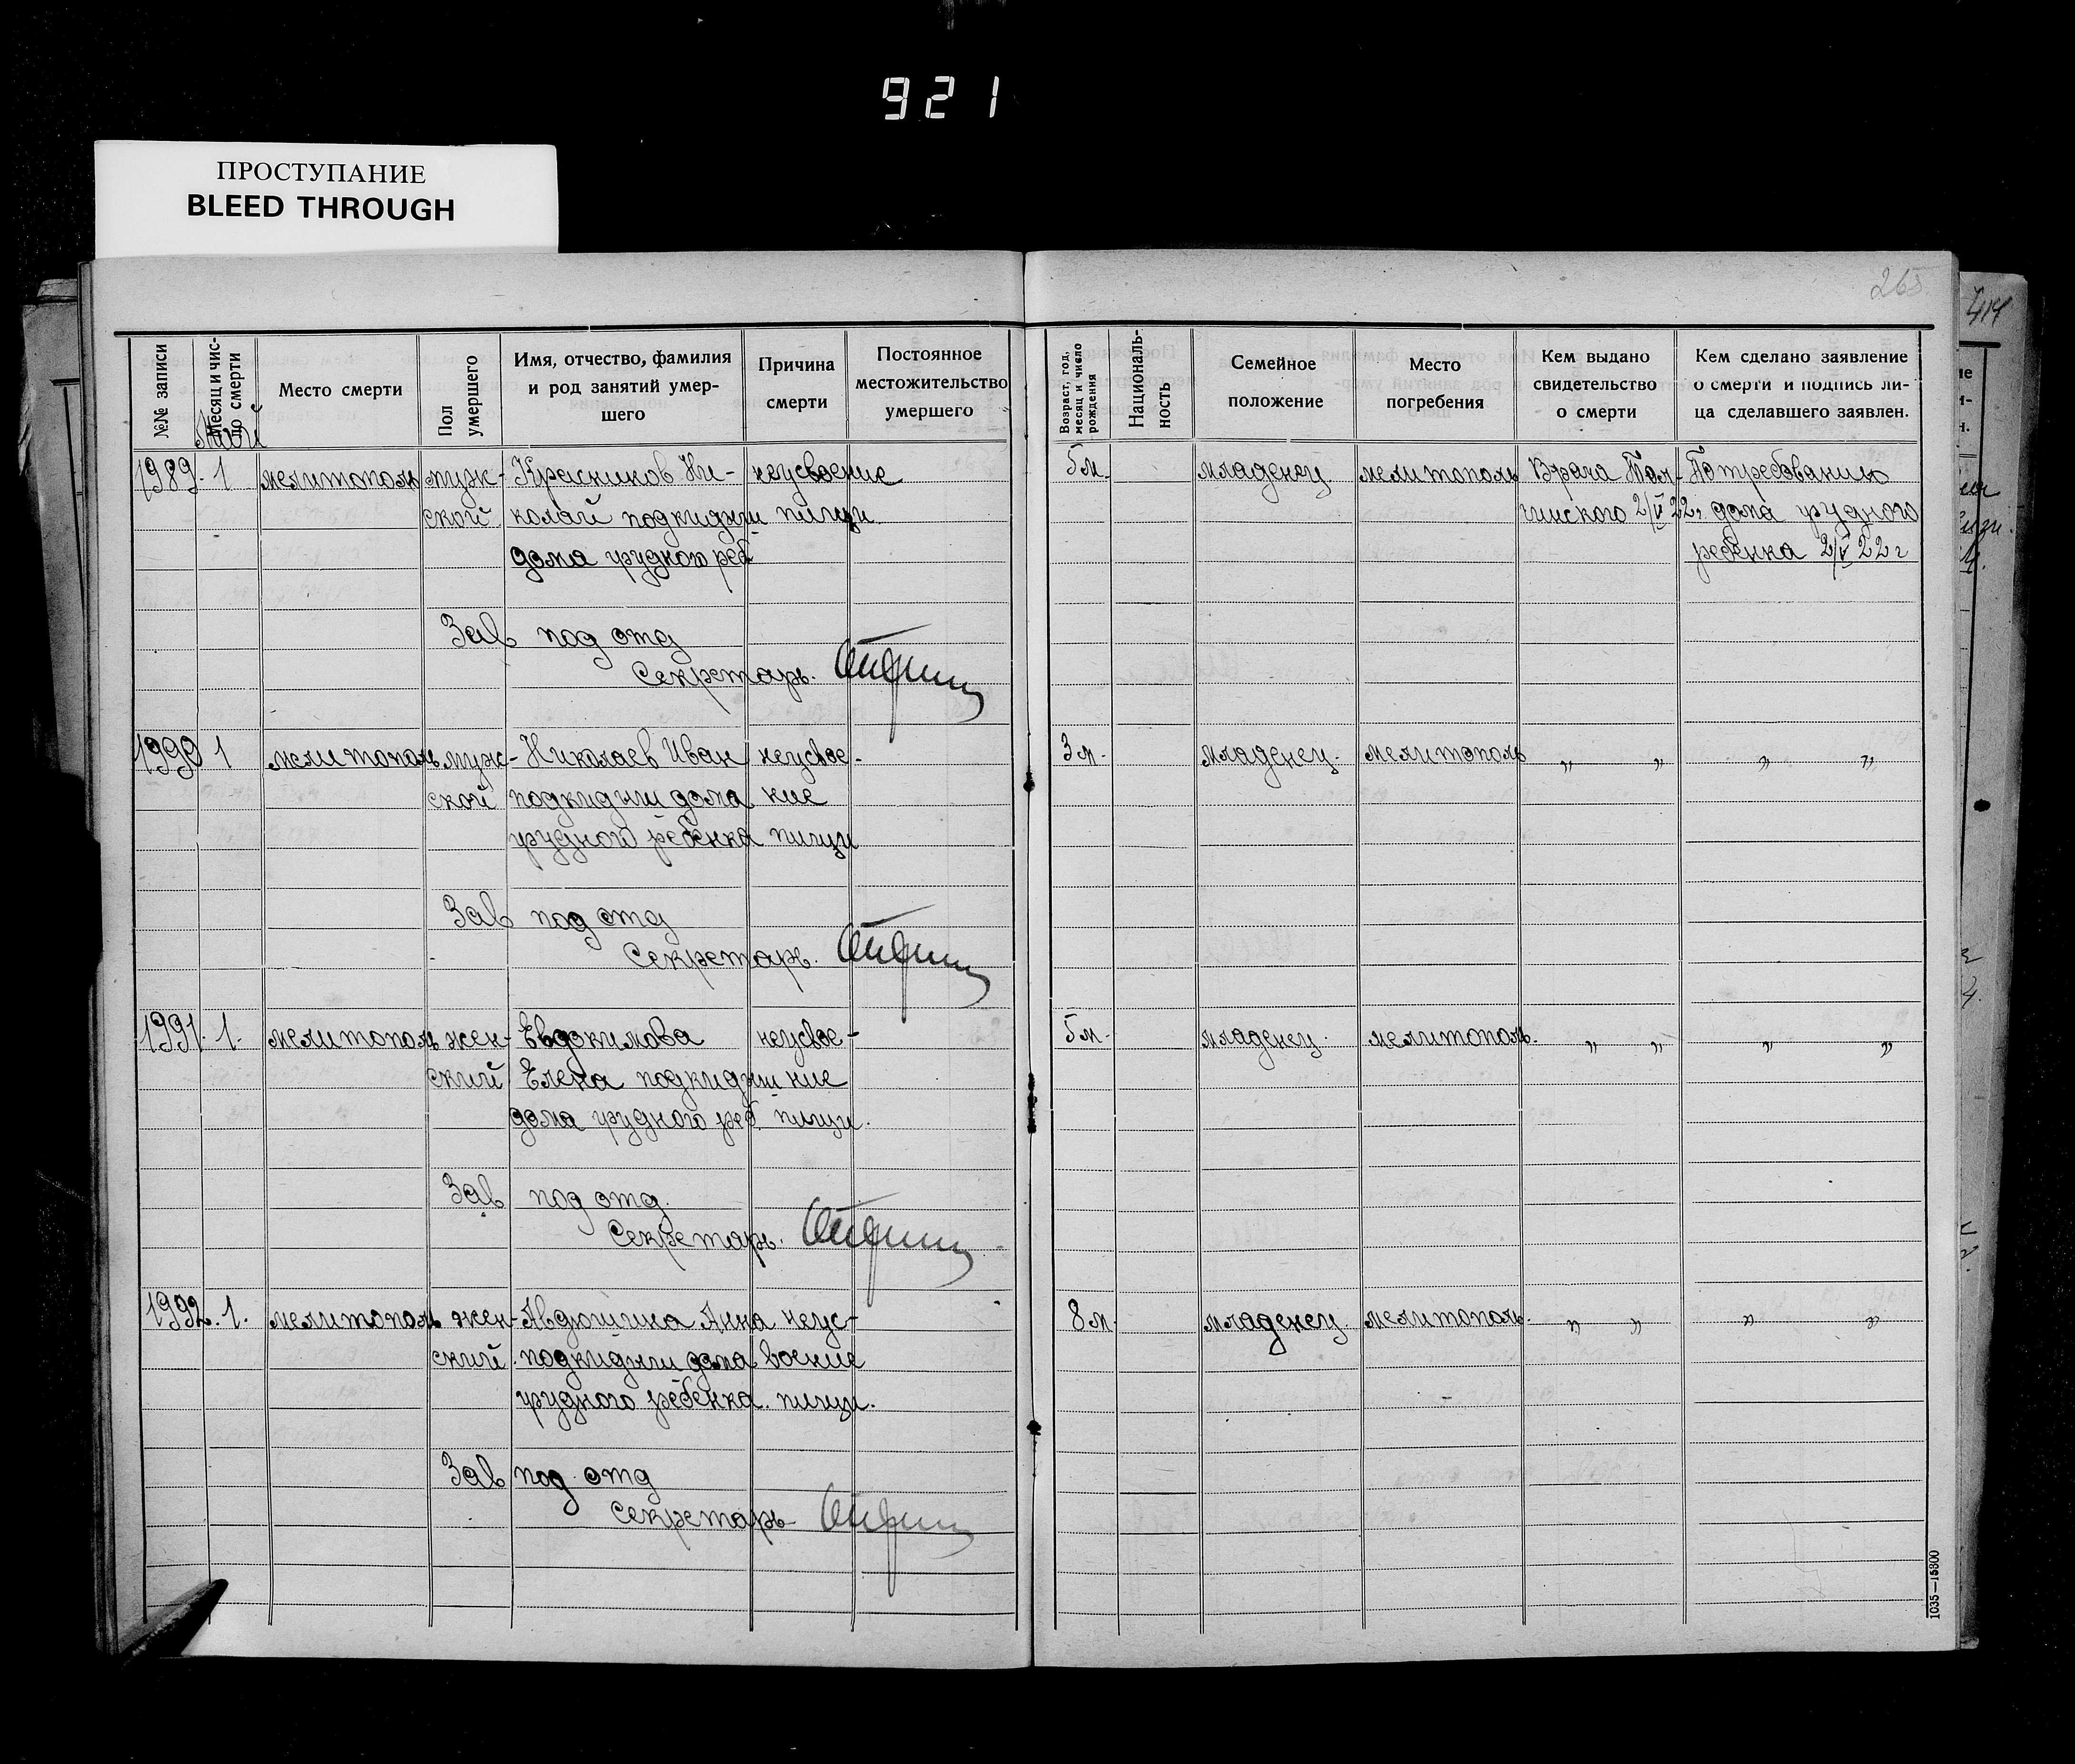 921
ПРОСТУПАНИЕ
BLEED THROUGH
265
414
№№ записи
Месяц и число смерти
Место смерти
Пол умершего
Имя, отчество, фамилия
и род занятий умер-
шего
Причина
смерти
Постоянное
местожительство
умершего
Возраст, год,
месяц и число
рождения
Националь-
ность
Семейное
положение
Место
погребения
Кем выдано
свидетельство
о смерти
Кем сделано заявление
о смерти и подпись ли-
ца сделавшего заявлен.
Май
1989. 1 мелитополь муж- Ни- неусвоение 5м. младенец. мелитополь Врача Пол- По требованию
ской колай подкидыш пищи гинского 2/V 22. дома грудного
дома грудного реб ребенка 2/V 22 г
Зав под отд
Секретарь.
1990 1 мелитополь муж- Николаев Иван неусвое- 3м. младенец. мелитополь „ „ „ „
ской подкидыш дома ние
грудного ребенка пищи
Зав под отд
Секретарь.
1991. 1. мелитополь жен- Евдокимова неусвое- 5м. младенец. мелитополь. „ „ „ „
ский Елена подкидыш ние
дома грудного реб пищи.
Зав под отд.
Секретарь.
1992. 1. мелитополь жен- Анна неус- 8м. младенец. мелитополь. „ „ „ „
ский. подкидыш дома воение
грудного ребенка. пищи.
Зав под отд
Секретарь
1035—15800